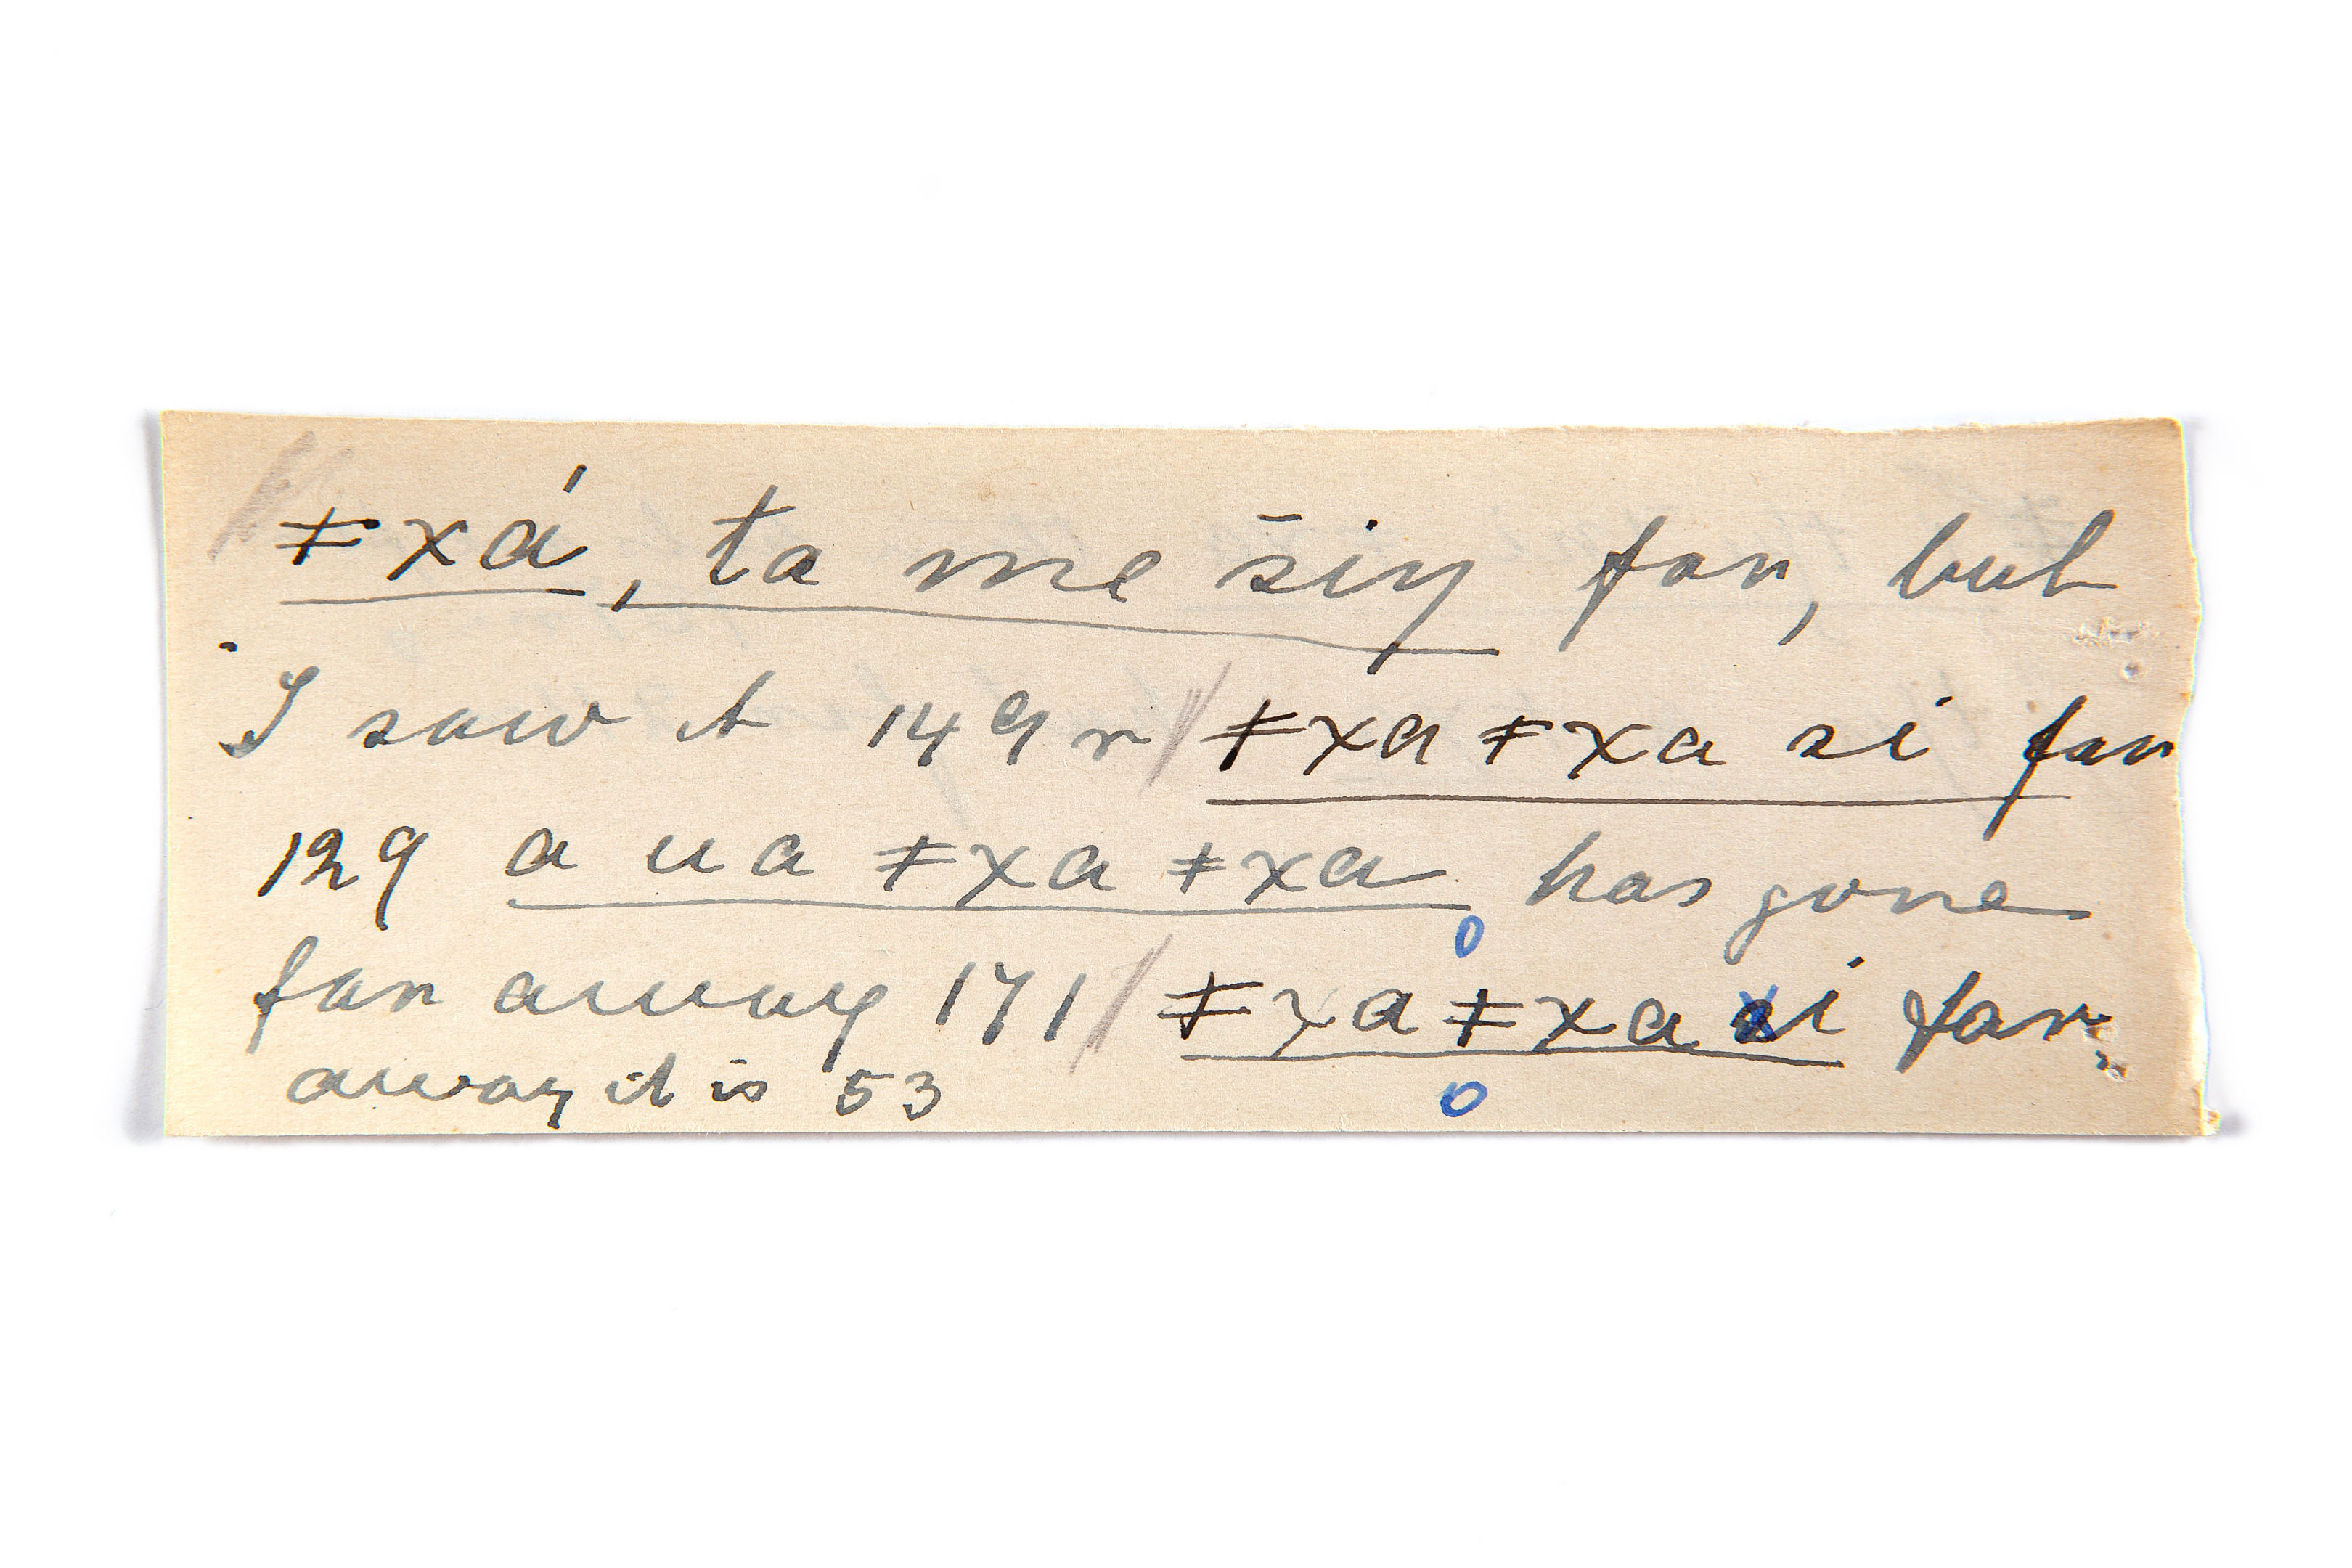 ǂxá, ta me s̄iŋ far, but
I saw it 149 r // ǂxa ǂxa si far
129 a ua ǂxa ǂxa has gone
far away 171 // ǂxa ǂxa si far
away it is 53